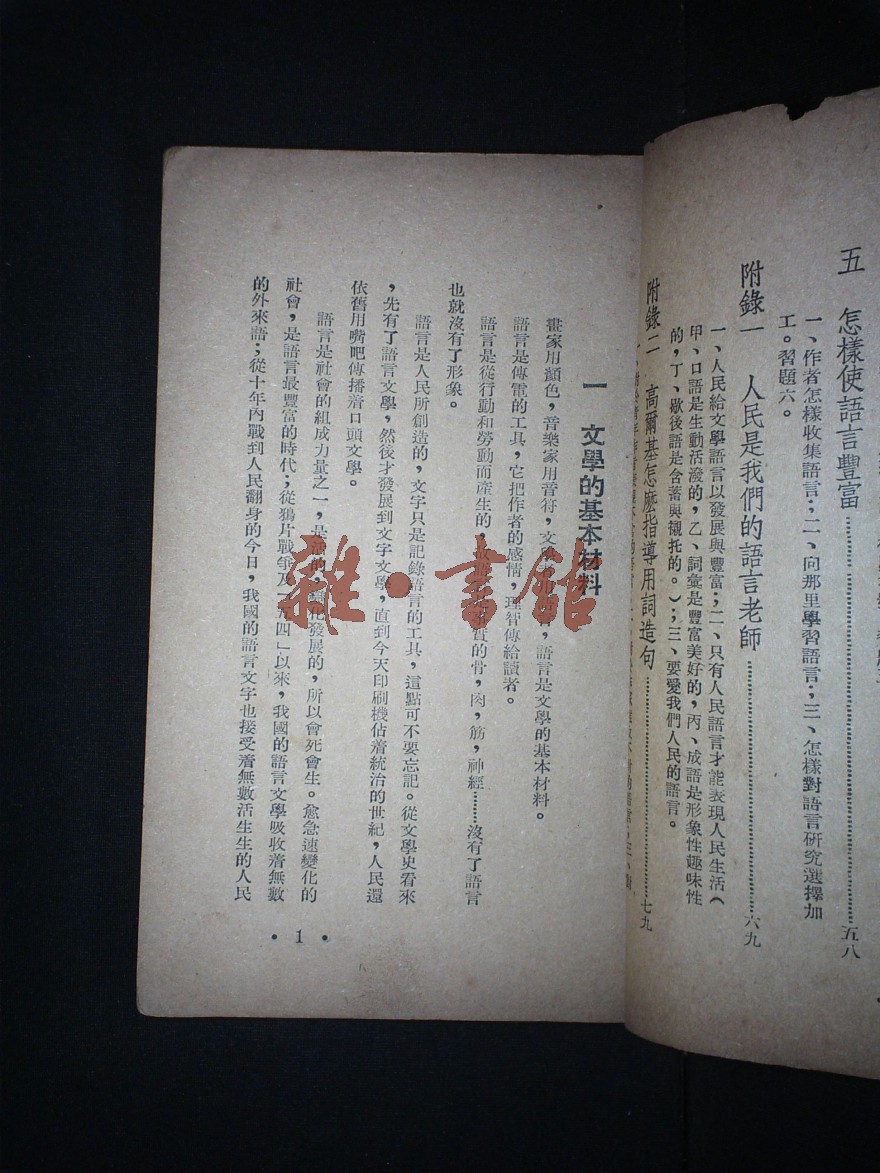 五 怎樣使語言豐富……………………五八
一、作者怎樣收集語言;二、向那里學習語言;三、怎樣對語言研究選擇加
工。習題六。
附錄一 人民是我們的語言老師……………………六九
一、人民給文學語言以發展與豐富;二、只有人民語言才能表現人民生活(
甲、口語是生動活潑的,乙、詞彙是豐富美好的,丙、成語是形象性趣味性
的,丁、歇後語是含蓄與襯托的。);三、要愛我們人民的語言。
附錄二 高爾基怎麽指導用詞造句……………………七九
一 文學的基本材料
畫家用顏色,音樂家用音符,文學,語言是文學的基本材料。
語言是傳電的工具,它把作者的感情,理智傳給讀者。
語言是從行動和勞動而產生的,的骨,肉,筋,神經……沒有了語言
也就沒有了形象。
語言是人民所創造的,文字只是記錄語言的工具,這點可不要忘記。從文學史看來
,先有了語言文學,然後才發展到文字文學,直到今天印刷機佔着統治的世紀,人民還
依舊用嘴吧傳播着口頭文學。
語言是社會的組成力量之一,是活的,變化發展的,所以會死會生。愈急速變化的
社會,是語言最豐富的時代;從鴉片戰爭及「五四」以來,我國的語言文學吸收着無數
的外來語;從十年內戰到人民翻身的今日,我國的語言文字也接受着無數活生生的人民
• 1 •
雜·書館